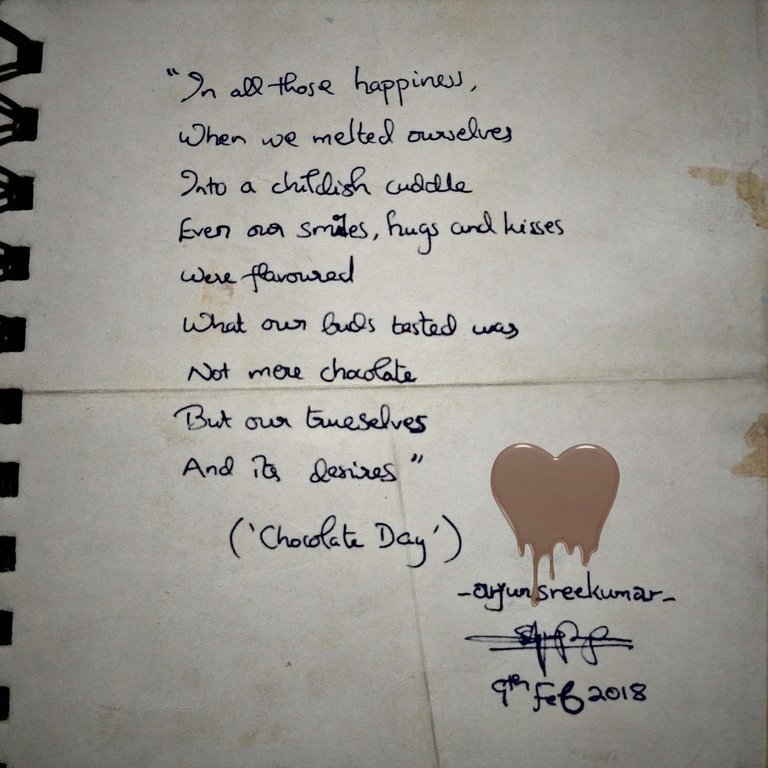 "In all those happiness,
When we melted ourselves
Into a childish cuddle
Even our smiles, hugs and kisses
were flavoured
What our buds tasted was
Not mere chocolate
But our trueselves
And its desires"
('Chocolate Day')
-arjunsreekumar-
9th Feb 2018